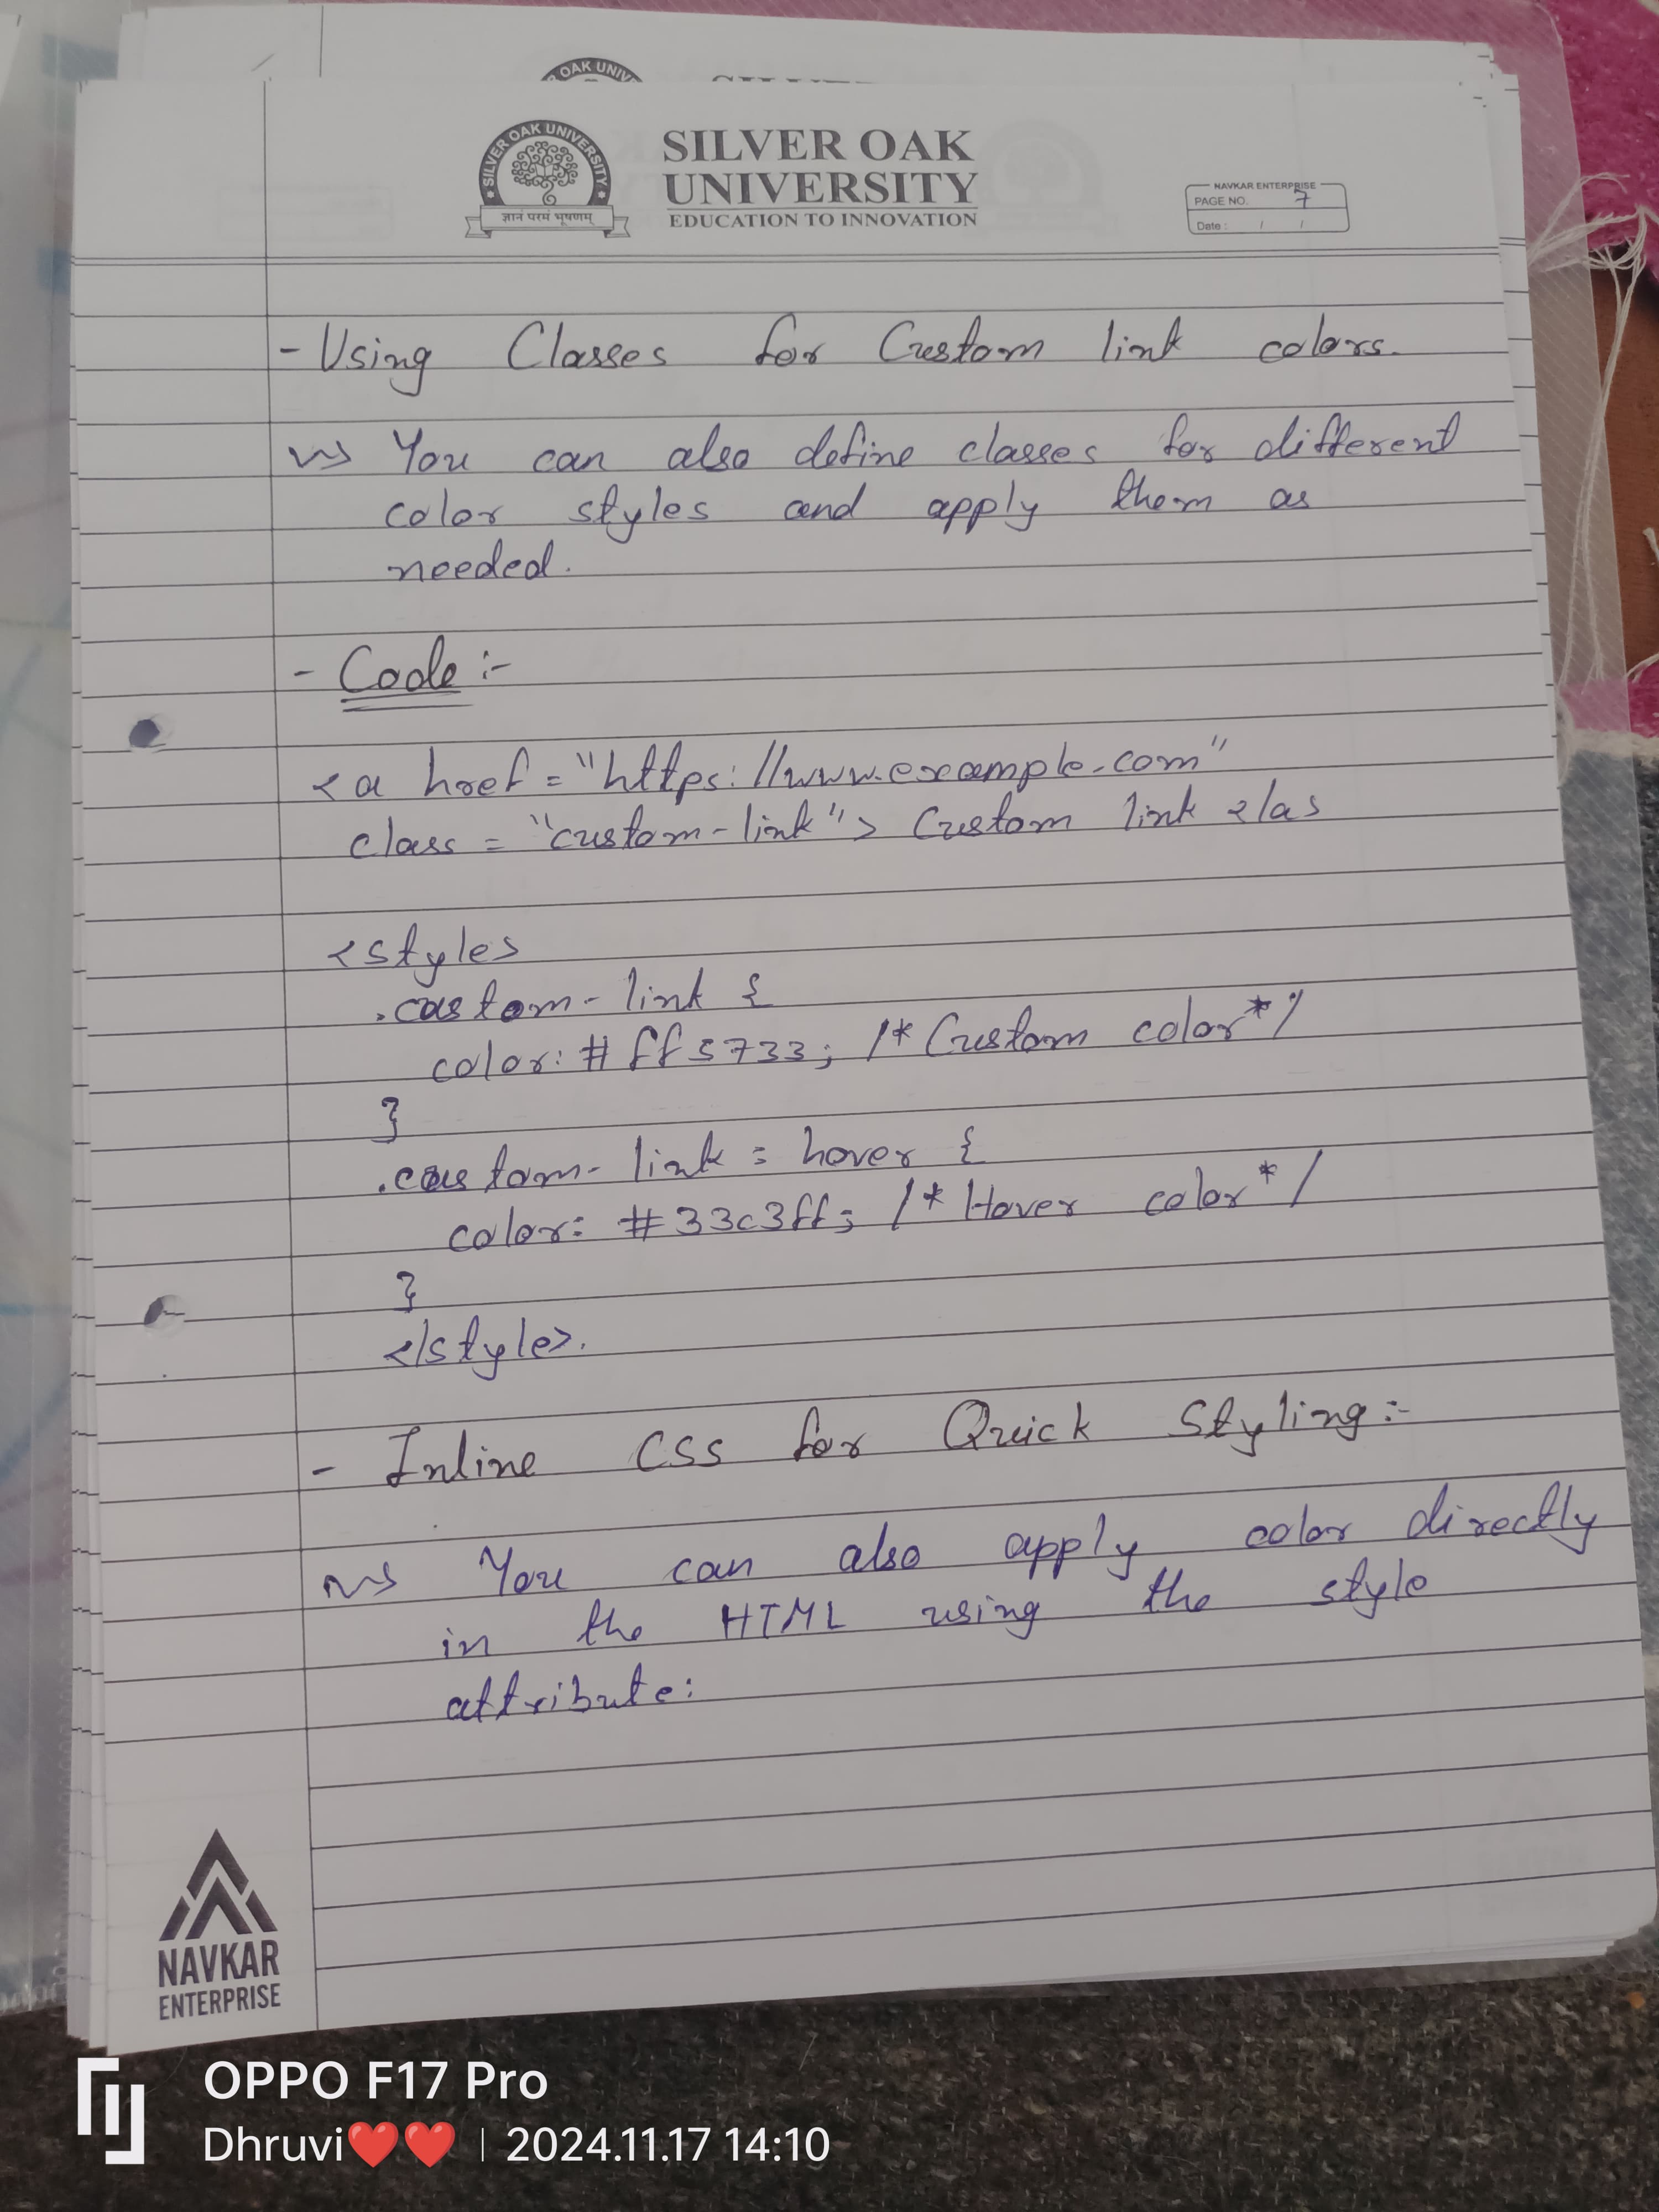 OAK UNIV
SILVER OAK UNIVERSITY
ज्ञानं परमं भूषणम्
SILVER OAK
UNIVERSITY
EDUCATION TO INNOVATION
NAVKAR ENTERPRISE
PAGE NO. 7
Date : / /
- Using Classes for Custom link colors.
You can also define classes for different
color styles and apply them as
needed.
- Code :-
<a href = "https://www.example.com"
class = "custom-link"> Custom link </a>
<style>
.custom-link {
color: #ff5733; /* Custom color */
}
.custom-link : hover {
color: #33c3ff; /* Hover color */
}
</style>.
- Inline CSS for Quick Styling :-
You can also apply color directly
in the HTML using the style
attribute:
NAVKAR
ENTERPRISE
OPPO F17 Pro
Dhruvi❤️❤️ | 2024.11.17 14:10